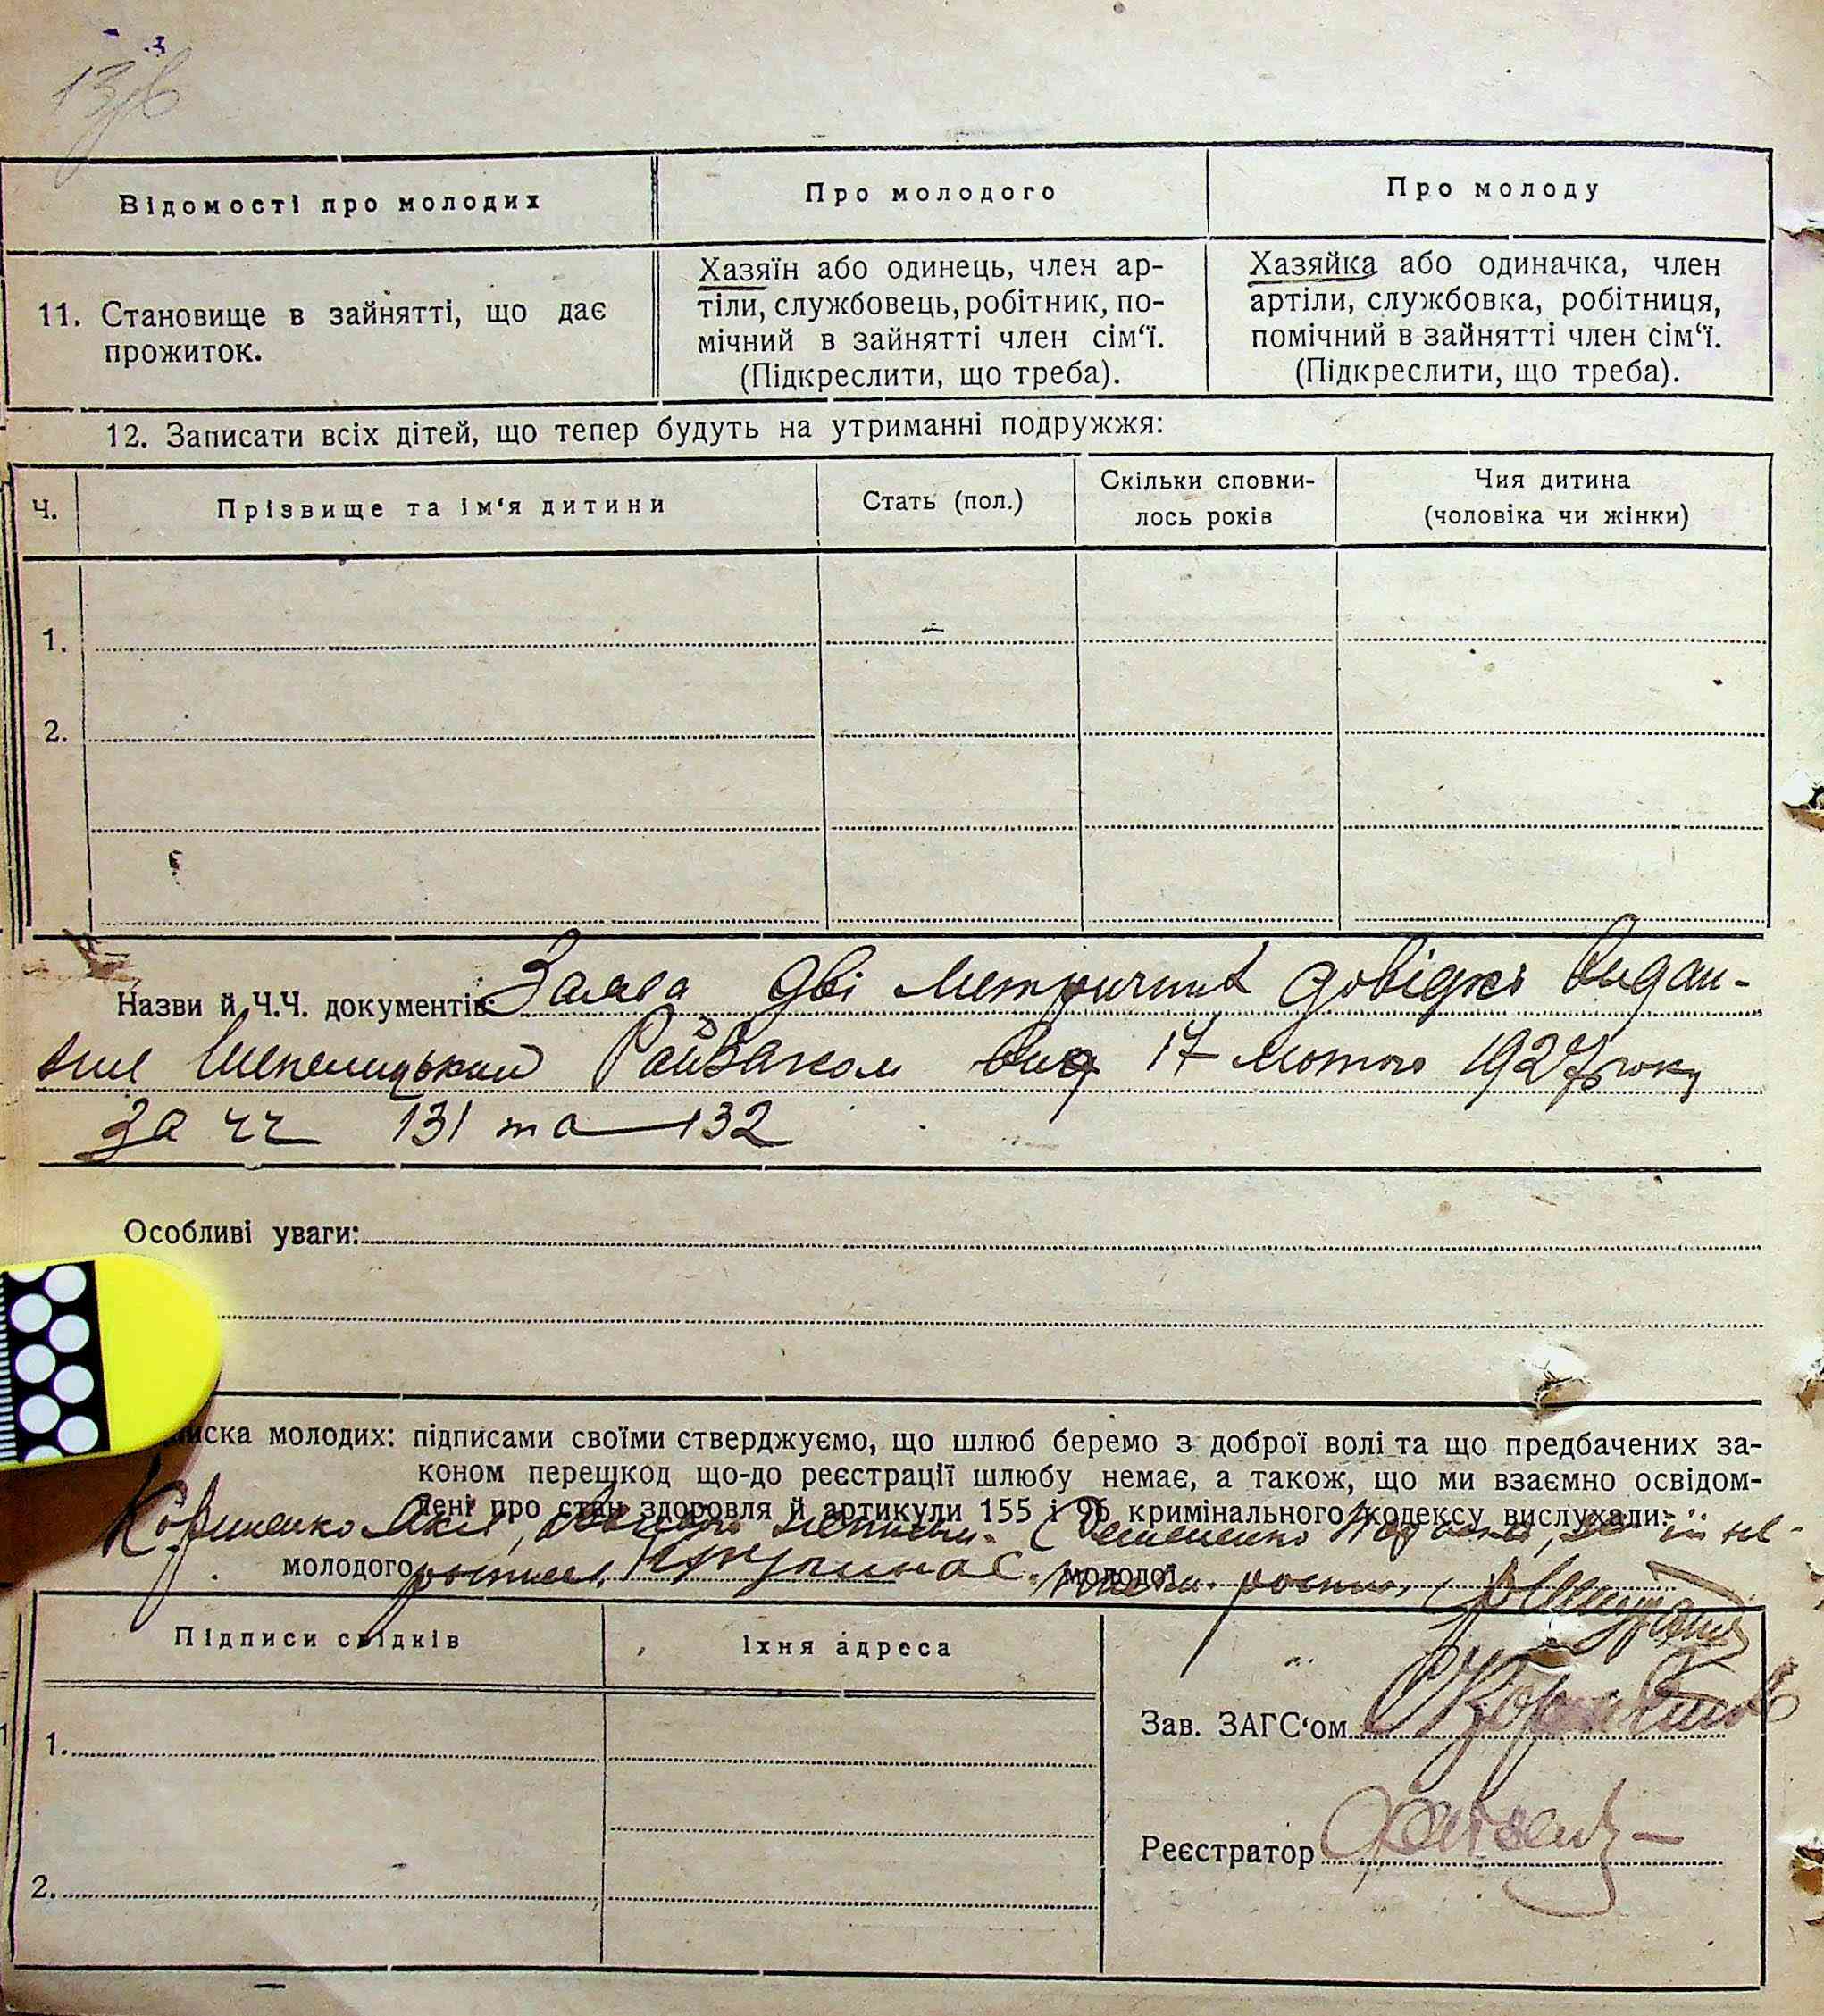 13/б
Відомості про молодих
Про молодого
Про молоду
11. Становище в зайнятті, що дає
прожиток.
Хазяїн або одинець, член ар-
тіли, службовець, робітник, по-
мічний в зайнятті член сім‘ї.
(Підкреслити, що треба).
Хазяйка або одиначка, член
артіли, службовка, робітниця,
помічний в зайнятті член сім‘ї.
(Підкреслити, що треба).
12. Записати всіх дітей, що тепер будуть на утриманні подружжя:
Ч.
Прізвище та ім‘я дитини
Стать (пол.)
Скільки сповни-
лось років
Чия дитина
(чоловіка чи жінки)
1.
2.
Назви й Ч.Ч. документів: Заява дві метричні довідки видан-
Райзагсом від 17 лютого 1927 року
за чч 131 та 132
Особливі уваги:
иска молодих: підписами своїми стверджуємо, що шлюб беремо з доброї волі та що предбачених за-
коном перешкод що-до реєстрації шлюбу немає, а також, що ми взаємно освідом-
лені про стан здоровля й артикули 155 і 96 кримінального кодексу вислухали:
молодого
молодої
Підписи свідків
Їхня адреса
1.
2.
Зав. ЗАГС‘ом
Реєстратор